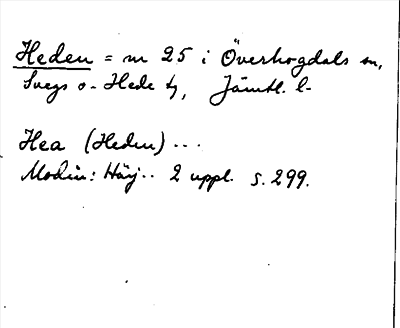 Heden = nr 25 i Överhogdals sn,
Svegs o. Hede tg, Jämtl. l-
Hea (Heden) ...
Modin: Härj.. 2 uppl. s. 299.